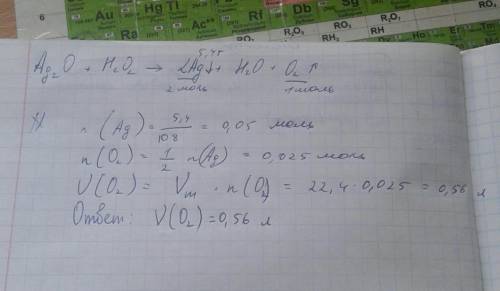 6
Au
Hg Tl
Rf
Db
Sg
R₂O₇
RO₄
RH
5,4г
Ag₂O + H₂O₂ → 2Ag↓ + H₂O + O₂↑
2 моль 1 моль
n(Ag) = 5,4/108 = 0,05 моль
n(O₂) = 1/2 n(Ag) = 0,025 моль
V(O₂) = Vm · n(O₂) = 22,4·0,025 = 0,56 л
Ответ: V(O₂) = 0,56 л